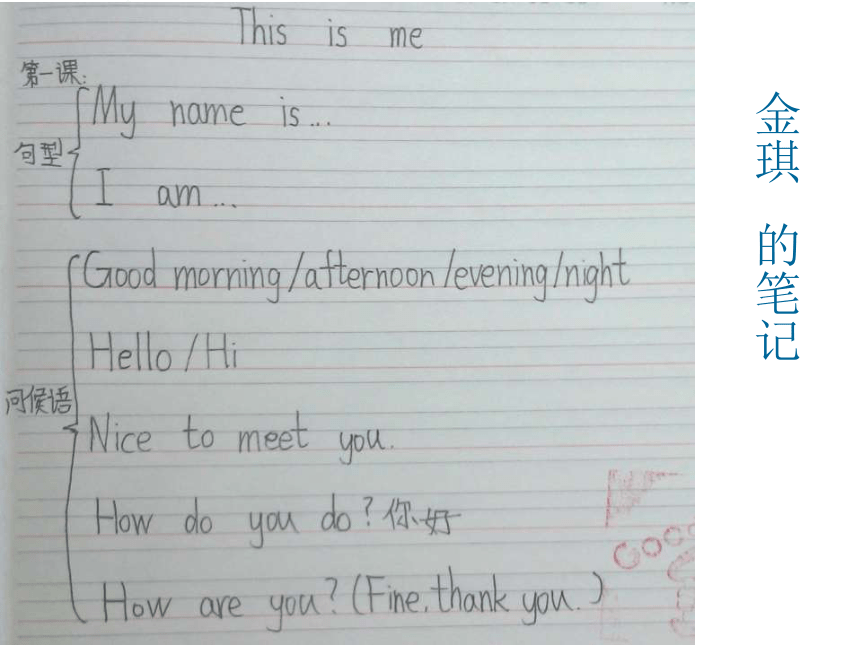 This is me
第一课:
My name is...
句型
I am...
Good morning/afternoon/evening/night
Hello/Hi
问候语
Nice to meet you.
How do you do?你好
How are you?(Fine.thank you.)
Good
金琪 的笔记